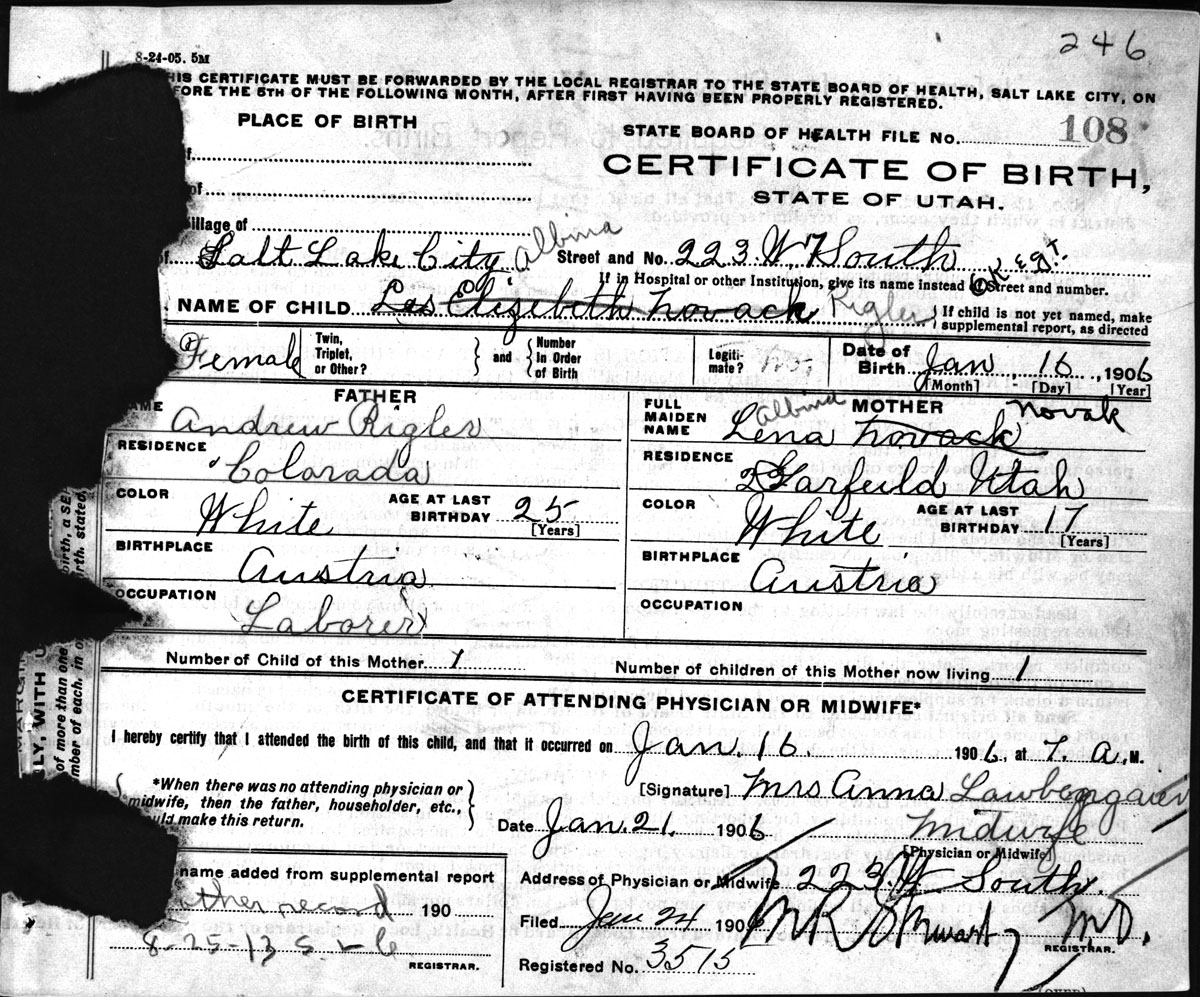 246
8-24-05. 5M
HIS CERTIFICATE MUST BE FORWARDED BY THE LOCAL REGISTRAR TO THE STATE BOARD OF HEALTH, SALT LAKE CITY, ON
FORE THE 5TH OF THE FOLLOWING MONTH, AFTER FIRST HAVING BEEN PROPERLY REGISTERED.
PLACE OF BIRTH
STATE BOARD OF HEALTH FILE No. 108
CERTIFICATE OF BIRTH,
STATE OF UTAH.
of
illage of
Salt Lake City Albina Street and No. 223 W 7 South
If in Hospital or other Institution, give its name instead of Street and number.
NAME OF CHILD Elizebeth Novack Rigler } If child is not yet named, make
supplemental report, as directed
Female Twin, Triplet, or Other? } and { Number In Order of Birth Legiti-mate? Date of Birth Jan. 16, 1906
[Month] [Day] [Year]
FATHER
AME Andrew Rigler
RESIDENCE
Colorada
COLOR White AGE AT LAST BIRTHDAY 25 [Years]
BIRTHPLACE
Austria
OCCUPATION
Laborer
MOTHER
FULL MAIDEN NAME Lena Albina Novack Novak
RESIDENCE
Garfeild Utah
COLOR White AGE AT LAST BIRTHDAY 17 [Years]
BIRTHPLACE
Austria
OCCUPATION
Number of Child of this Mother 1 Number of children of this Mother now living 1
CERTIFICATE OF ATTENDING PHYSICIAN OR MIDWIFE*
I hereby certify that I attended the birth of this child, and that it occurred on Jan. 16. 1906, at 7. A. M.
*When there was no attending physician or
midwife, then the father, householder, etc.,
uld make this return.
[Signature] Mrs Anna
Date Jan. 21. 1906 Midwife
[Physician or Midwife]
name added from supplemental report
other record 190
8-25-13
REGISTRAR.
Address of Physician or Midwife 223 W South.
Filed Jan 24 1906 M.D.
REGISTRAR.
Registered No. 3515
(OVER)
MARGIN
NLY, WITH U
of more than one
mber of each, in o
birth, a SE
irth, stated,